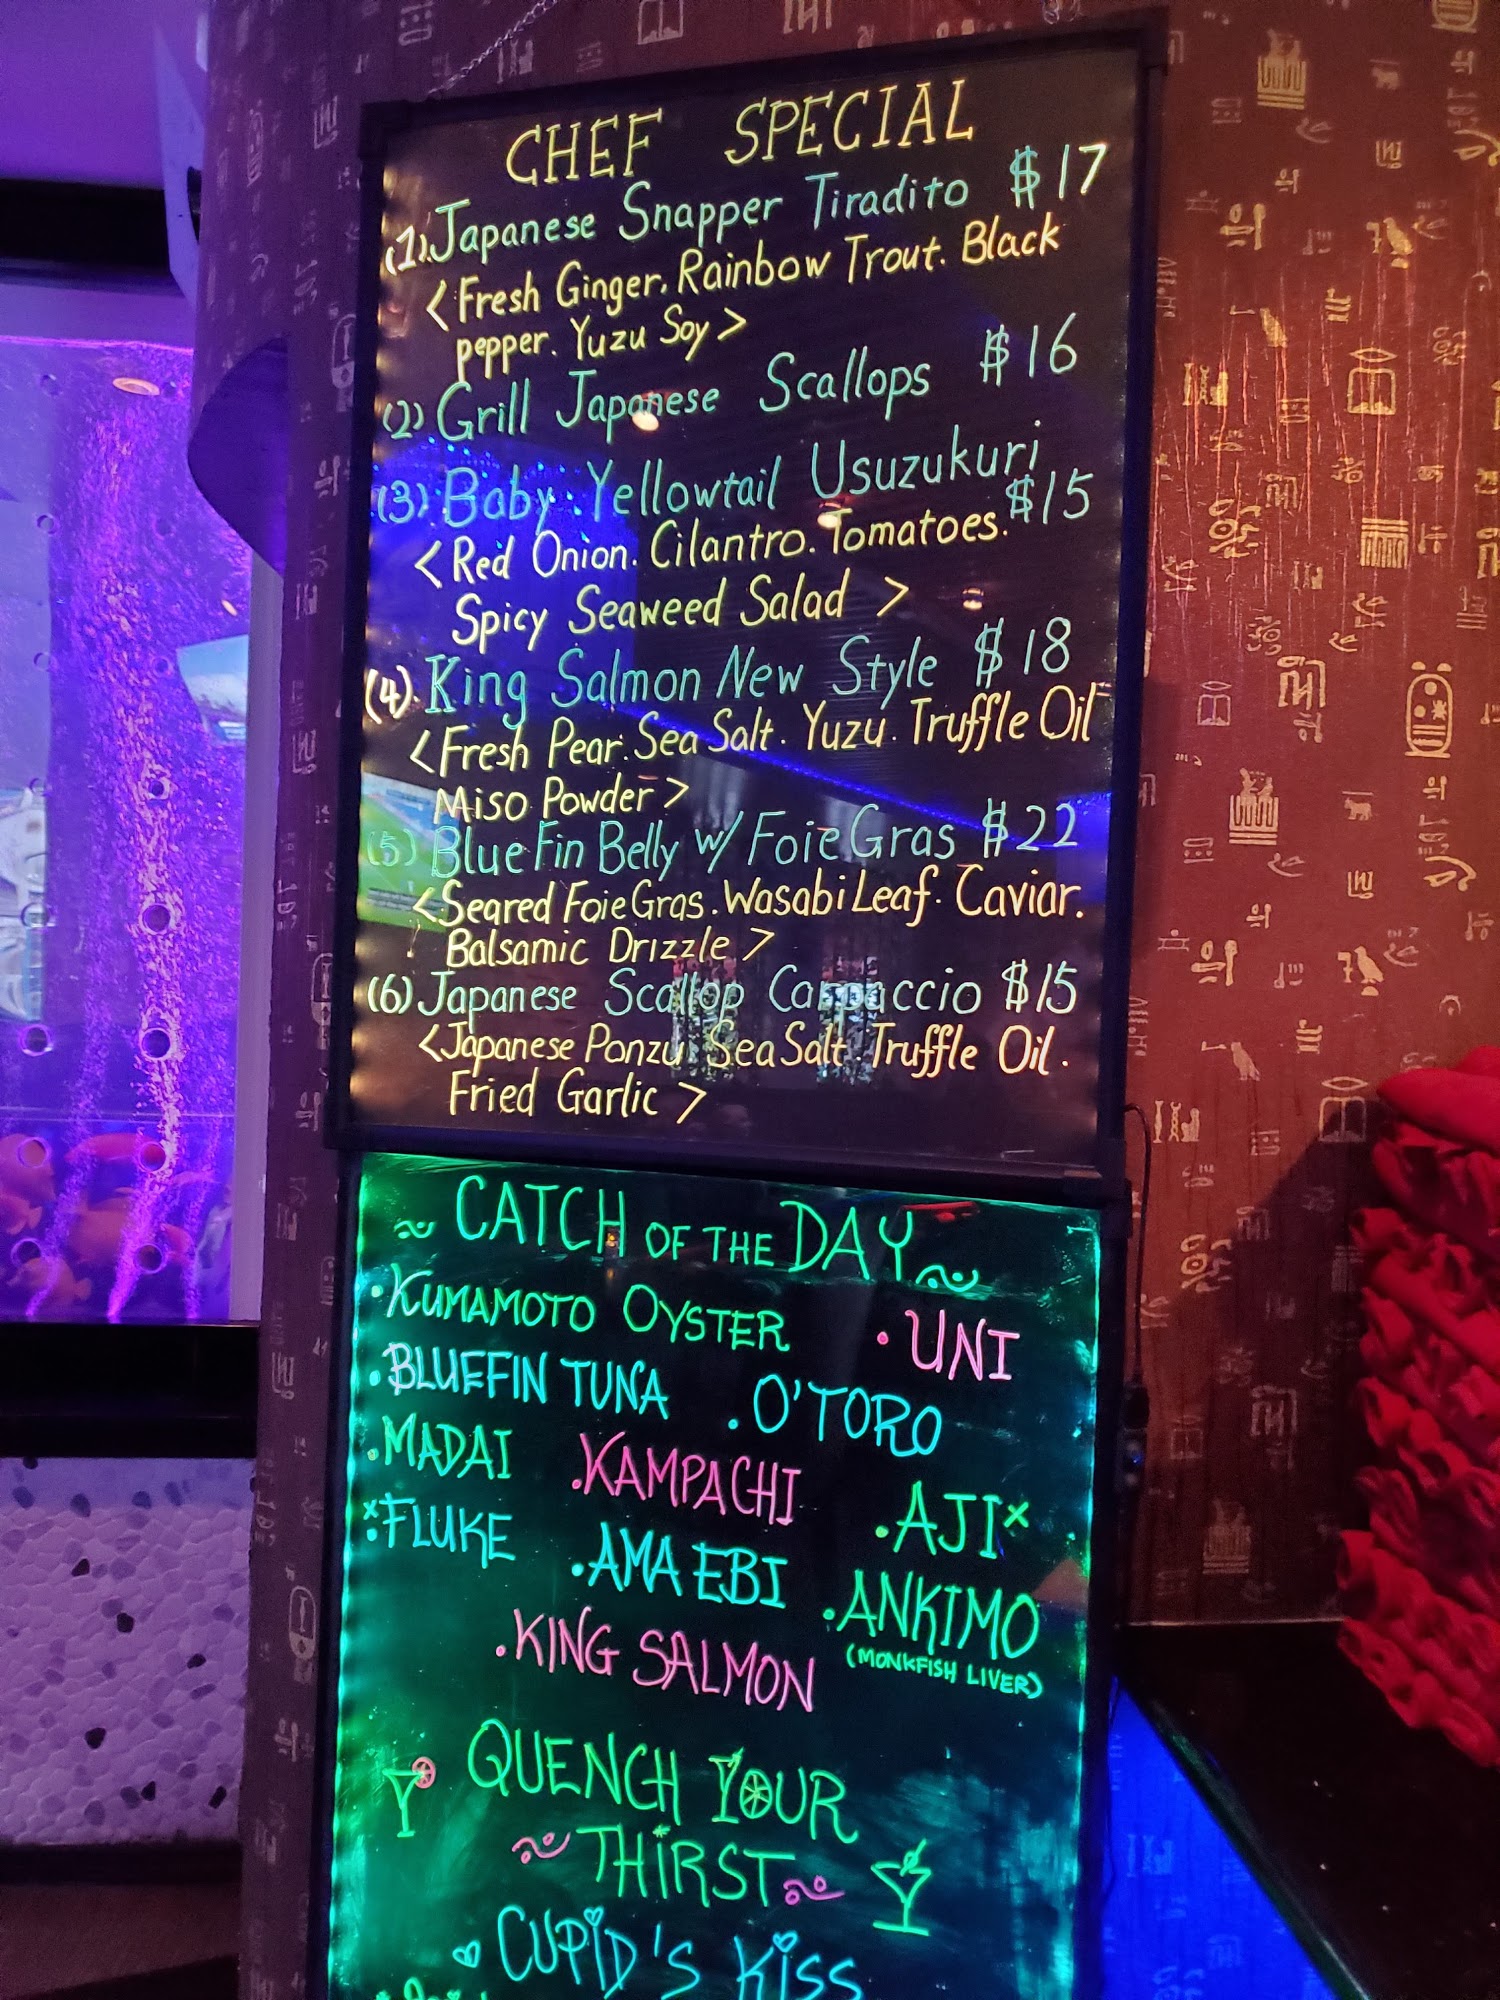 CHEF SPECIAL
(1). Japanese Snapper Tiradito $17
<Fresh Ginger. Rainbow Trout. Black
pepper. Yuzu Soy>
(2) Grill Japanese Scallops $16
(3) Baby Yellowtail Usuzukuri
$15
<Red Onion. Cilantro. Tomatoes.
Spicy Seaweed Salad>
(4). King Salmon New Style $18
<Fresh Pear. Sea Salt. Yuzu. Truffle Oil
Miso Powder>
(5) Blue Fin Belly w/ Foie Gras $22
<Seared Foie Gras. Wasabi Leaf. Caviar.
Balsamic Drizzle>
(6) Japanese Scallop Carpaccio $15
<Japanese Ponzu. Sea Salt. Truffle Oil.
Fried Garlic>
~ CATCH OF THE DAY ~
• KUMAMOTO OYSTER • UNI
• BLUEFIN TUNA • O'TORO
• MADAI • KAMPACHI • AJI x
x • FLUKE • AMA EBI • ANKIMO
(MONKFISH LIVER)
• KING SALMON
QUENCH YOUR
~ THIRST ~
CUPID'S KISS